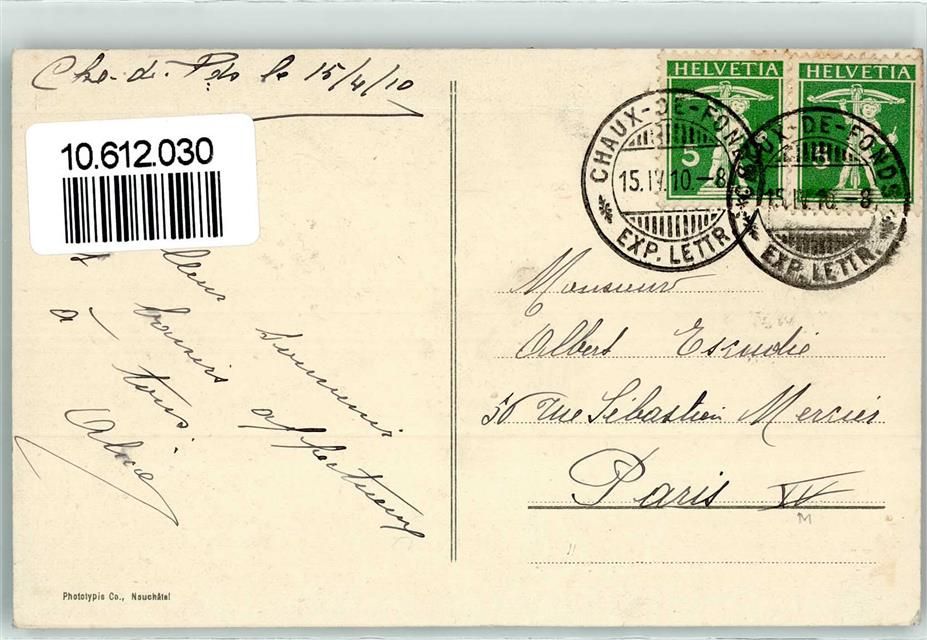 Chx-de-Fds le 15/4/10
10.612.030
HELVETIA
5
HELVETIA
5
CHAUX-DE-FONDS
15.IV.10-8
EXP. LETTR.
CHAUX-DE-FONDS
15.IV.10-8
EXP. LETTR.
souvenirs
affectueux
baisers
à tous.
Alice
Monsieur
Albert Escudié
50 rue Sébastien Mercier
Paris XV
Phototypie Co., Neuchâtel